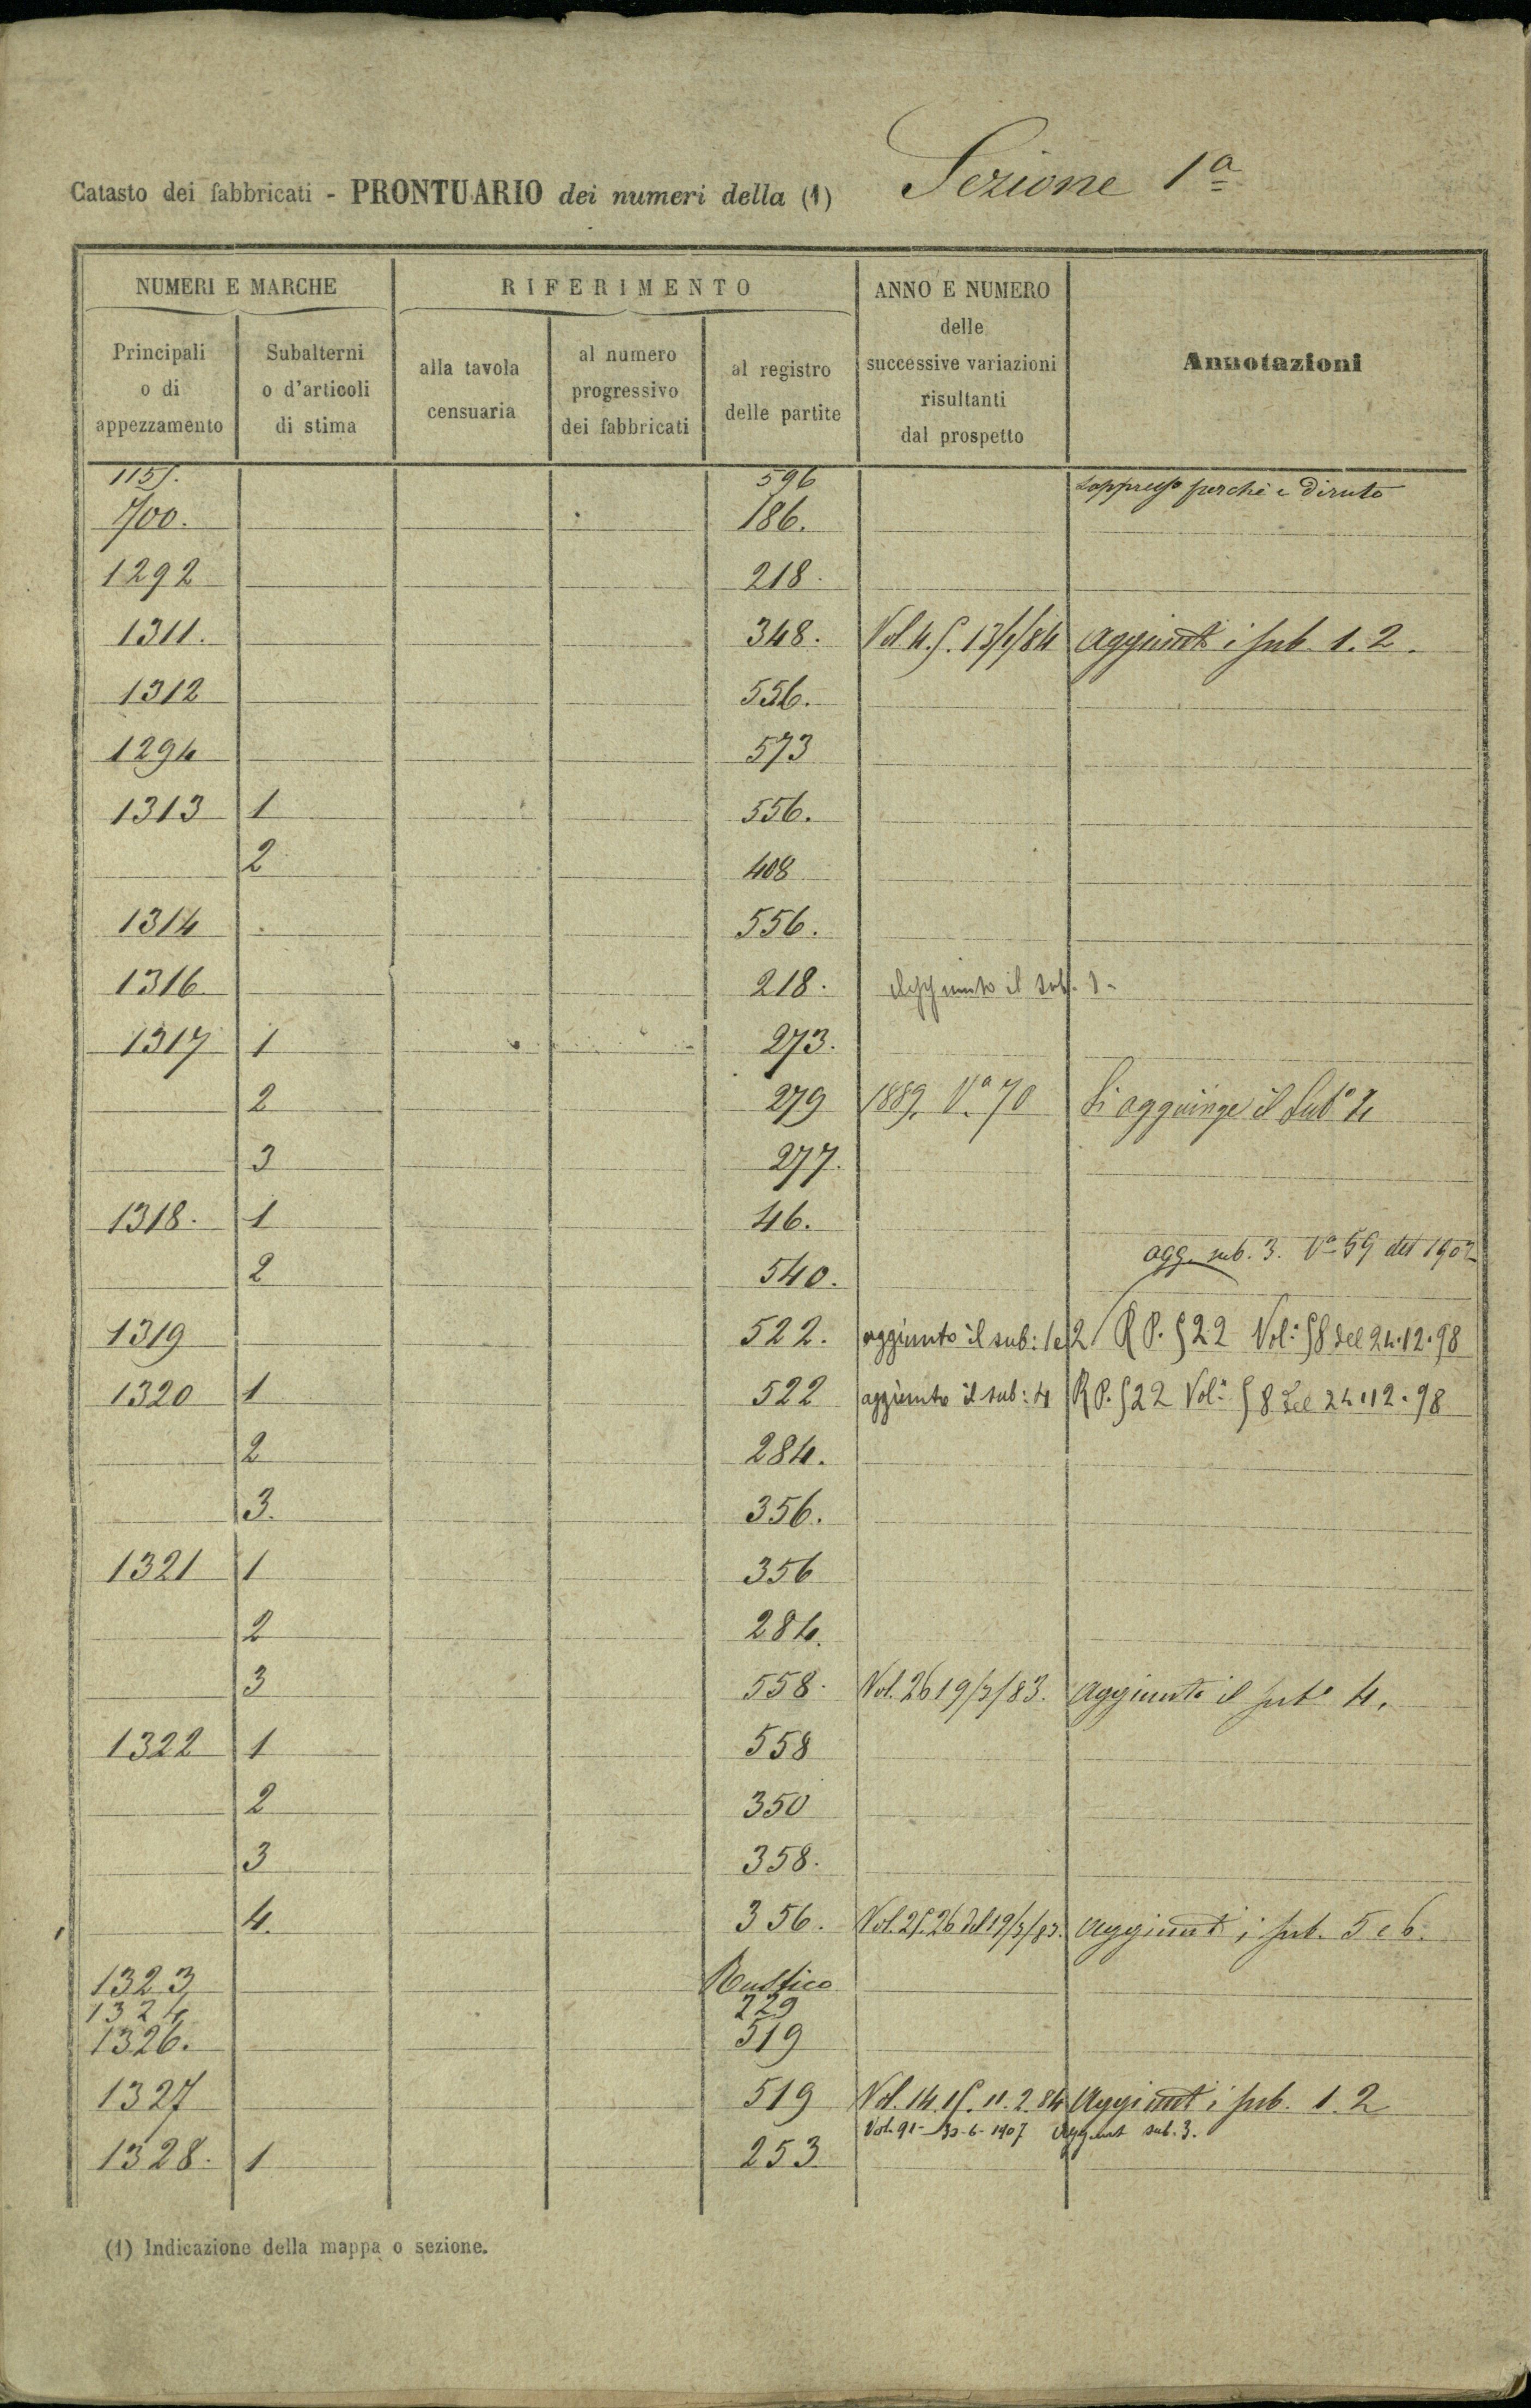 Catasto dei fabbricati - PRONTUARIO dei numeri della (1) Sezione 1ª
NUMERI E MARCHE
RIFERIMENTO
ANNO E NUMERO delle successive variazioni risultanti dal prospetto
Annotazioni
Principali o di appezzamento
Subalterni o d'articoli di stima
alla tavola censuaria
al numero progressivo dei fabbricati
al registro delle partite
596 soppresso perchè e diruto
700. 186.
1292 218.
1311. 348. Aggiunti i sub. 1. 2.
1312 556.
1294 573
1313 1 556.
2 408
1314 556.
1316 218. Aggiunto il sub.
1317 1 273.
2 279 1889. Vª 70 Si aggiunge il Sub°
3 277.
1318. 1 46.
agg. sub. 3. Vª 59 del
2 540.
1319 522. aggiunto il sub: 1 e 2 R P. 522 Vol: 58 del 24.12.98
1320 1 522 aggiunto il sub: 4 R P. 522 Vol: 58 del 24.12.98
2 284.
3. 356.
1321 1 356
2 284.
3 558. Vol. 26 19/3/83. Aggiunto il sub° 4.
1322 1 558
2 350
3 358.
4. 356. Vol. 2 f. 26 del 19/3/83. Aggiunti i sub. 5 e 6.
1323 Rustico
1324 229
1326. 519
1327 519 Vol. 14 11. 2. 84 Aggiunti i sub. 1. 2
Vol. 91 - 30-6-1907 Aggiunt sub. 3.
1328. 1 253
(1) Indicazione della mappa o sezione.